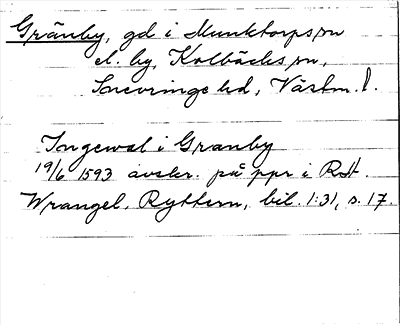 Gränby, gd i Munktorps sn
el. by, Kolbäcks sn,
Snevringe hd, Västm. l.
Ingewal i Granby
19/6 1593 avskr. på ppr i RA.
Wrangel, Ryttern, bil. 1:31, s. 17.